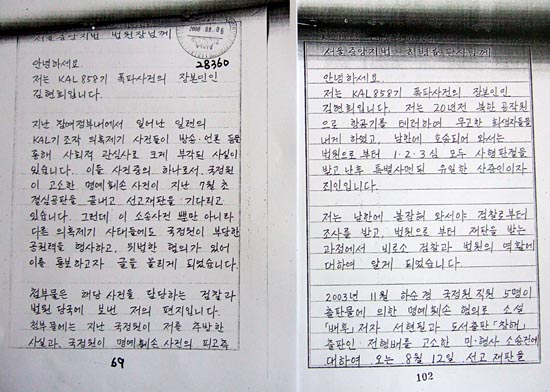 서울중앙지법 법원장님께
2008. 09. 05
28360
안녕하세요
저는 KAL858기 폭파사건의 장본인인
김현희입니다.
지난 참여정부내에서 일어난 일련의
KAL기 조작 의혹제기 사건들이 방송·언론 등을
통해 사회적 관심사로 크게 부각된 사실이
있습니다. 이들 사건중의 하나로서, 국정원
이 고소한 명예훼손 사건이 지난 7월 초
결심공판을 끝내고 선고재판을 기다리고
있습니다. 그런데 이 소송사건 뿐만 아니라
다른 의혹제기 사태들에도 국정원이 부당한
공권력을 행사하고, 위법한 혐의가 있어
이를 통보하고자 글을 올리게 되었습니다.
첨부물은 해당 사건을 담당하는 검찰과
법원 당국에 보낸 저의 편지입니다.
첨부물에는 지난 국정원이 저를 추방한
사실과 국정원이 명예훼손 사건의 피고측
69
서울중앙지법 판사님께
안녕하세요.
저는 KAL858기 폭파사건의 장본인인
김현희입니다. 저는 20년전 북한 공작원
으로 항공기를 테러하여 무고한 희생자들을
내게 하였고, 남한에 호송되어 와서는
법원으로 부터 1·2·3심 모두 사형판결을
받고난후 특별사면된 유일한 산증인이자
죄인입니다.
저는 남한에 붙잡혀 와서야 검찰로부터
조사를 받고, 법원으로 부터 재판을 받는
과정에서 비로소 검찰과 법원의 역할에
대하여 알게 되었습니다.
2003년 11월 하순경 국정원 직원 5명이
출판물에 의한 명예훼손 혐의로 소설
「배후」 저자 서현필과 도서출판 「창해」
출판인 전형배를 고소한 민·형사 소송건에
대하여 오는 8월 12일 선고 재판을
102